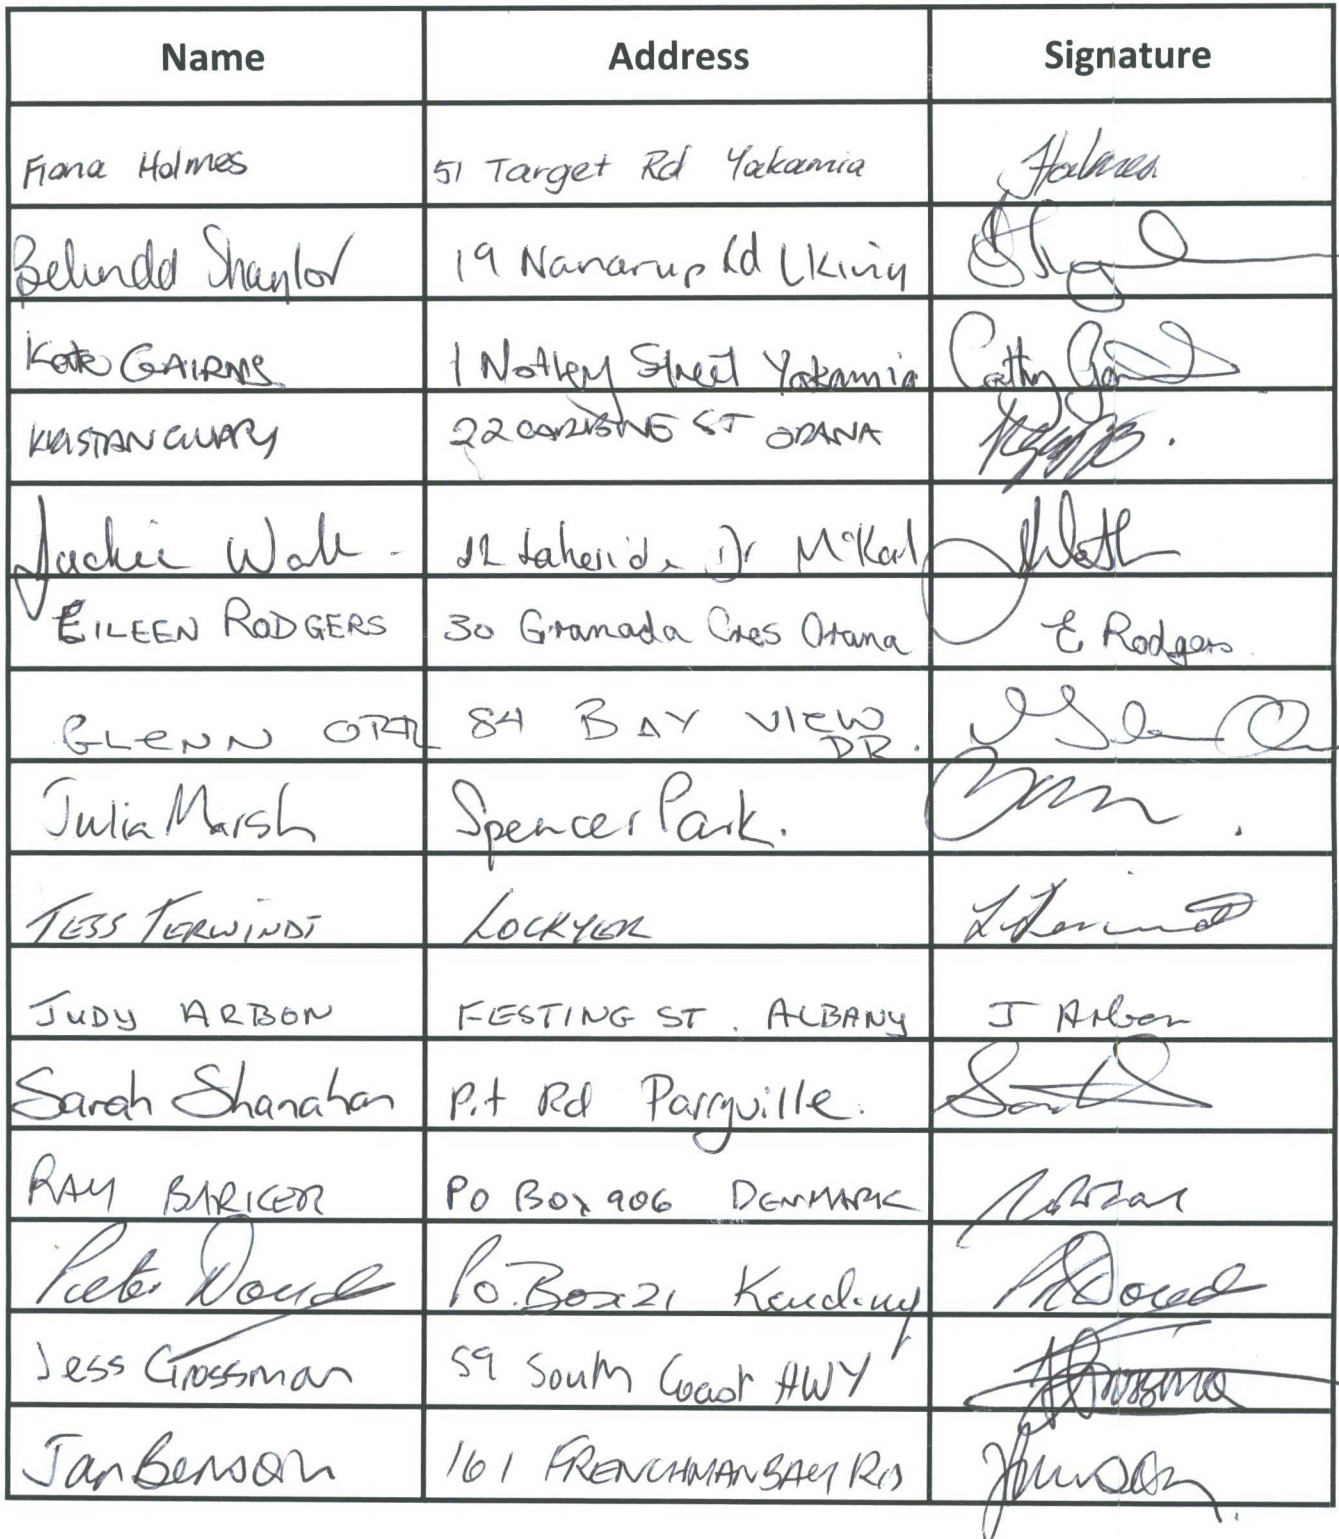 Name Address Signature
Fiona Holmes 51 Target Rd Yakamia Holmes
Belinda Shaylor 19 Nanarup Rd LKing
Kate GAIRNS 1 Notley Street Yakamia Cathy
22 ST ORANA
Jackie Dr McKail
EILEEN RODGERS 30 Granada Cres Orana E Rodgers
GLENN ORR 84 BAY VIEW
DR.
Julia Marsh Spencer Park.
TESS TERWINDT LOCKYER
JUDY ARBON FESTING ST. ALBANY J Arbon
Sarah Shanahan Pit Rd Parryville.
RAY BARKER PO BOX 906 DENMARK
P.O. Box 21
Jess Grossman 59 South Coast HWY
Jan Benson 161 FRENCHMAN BAY RD